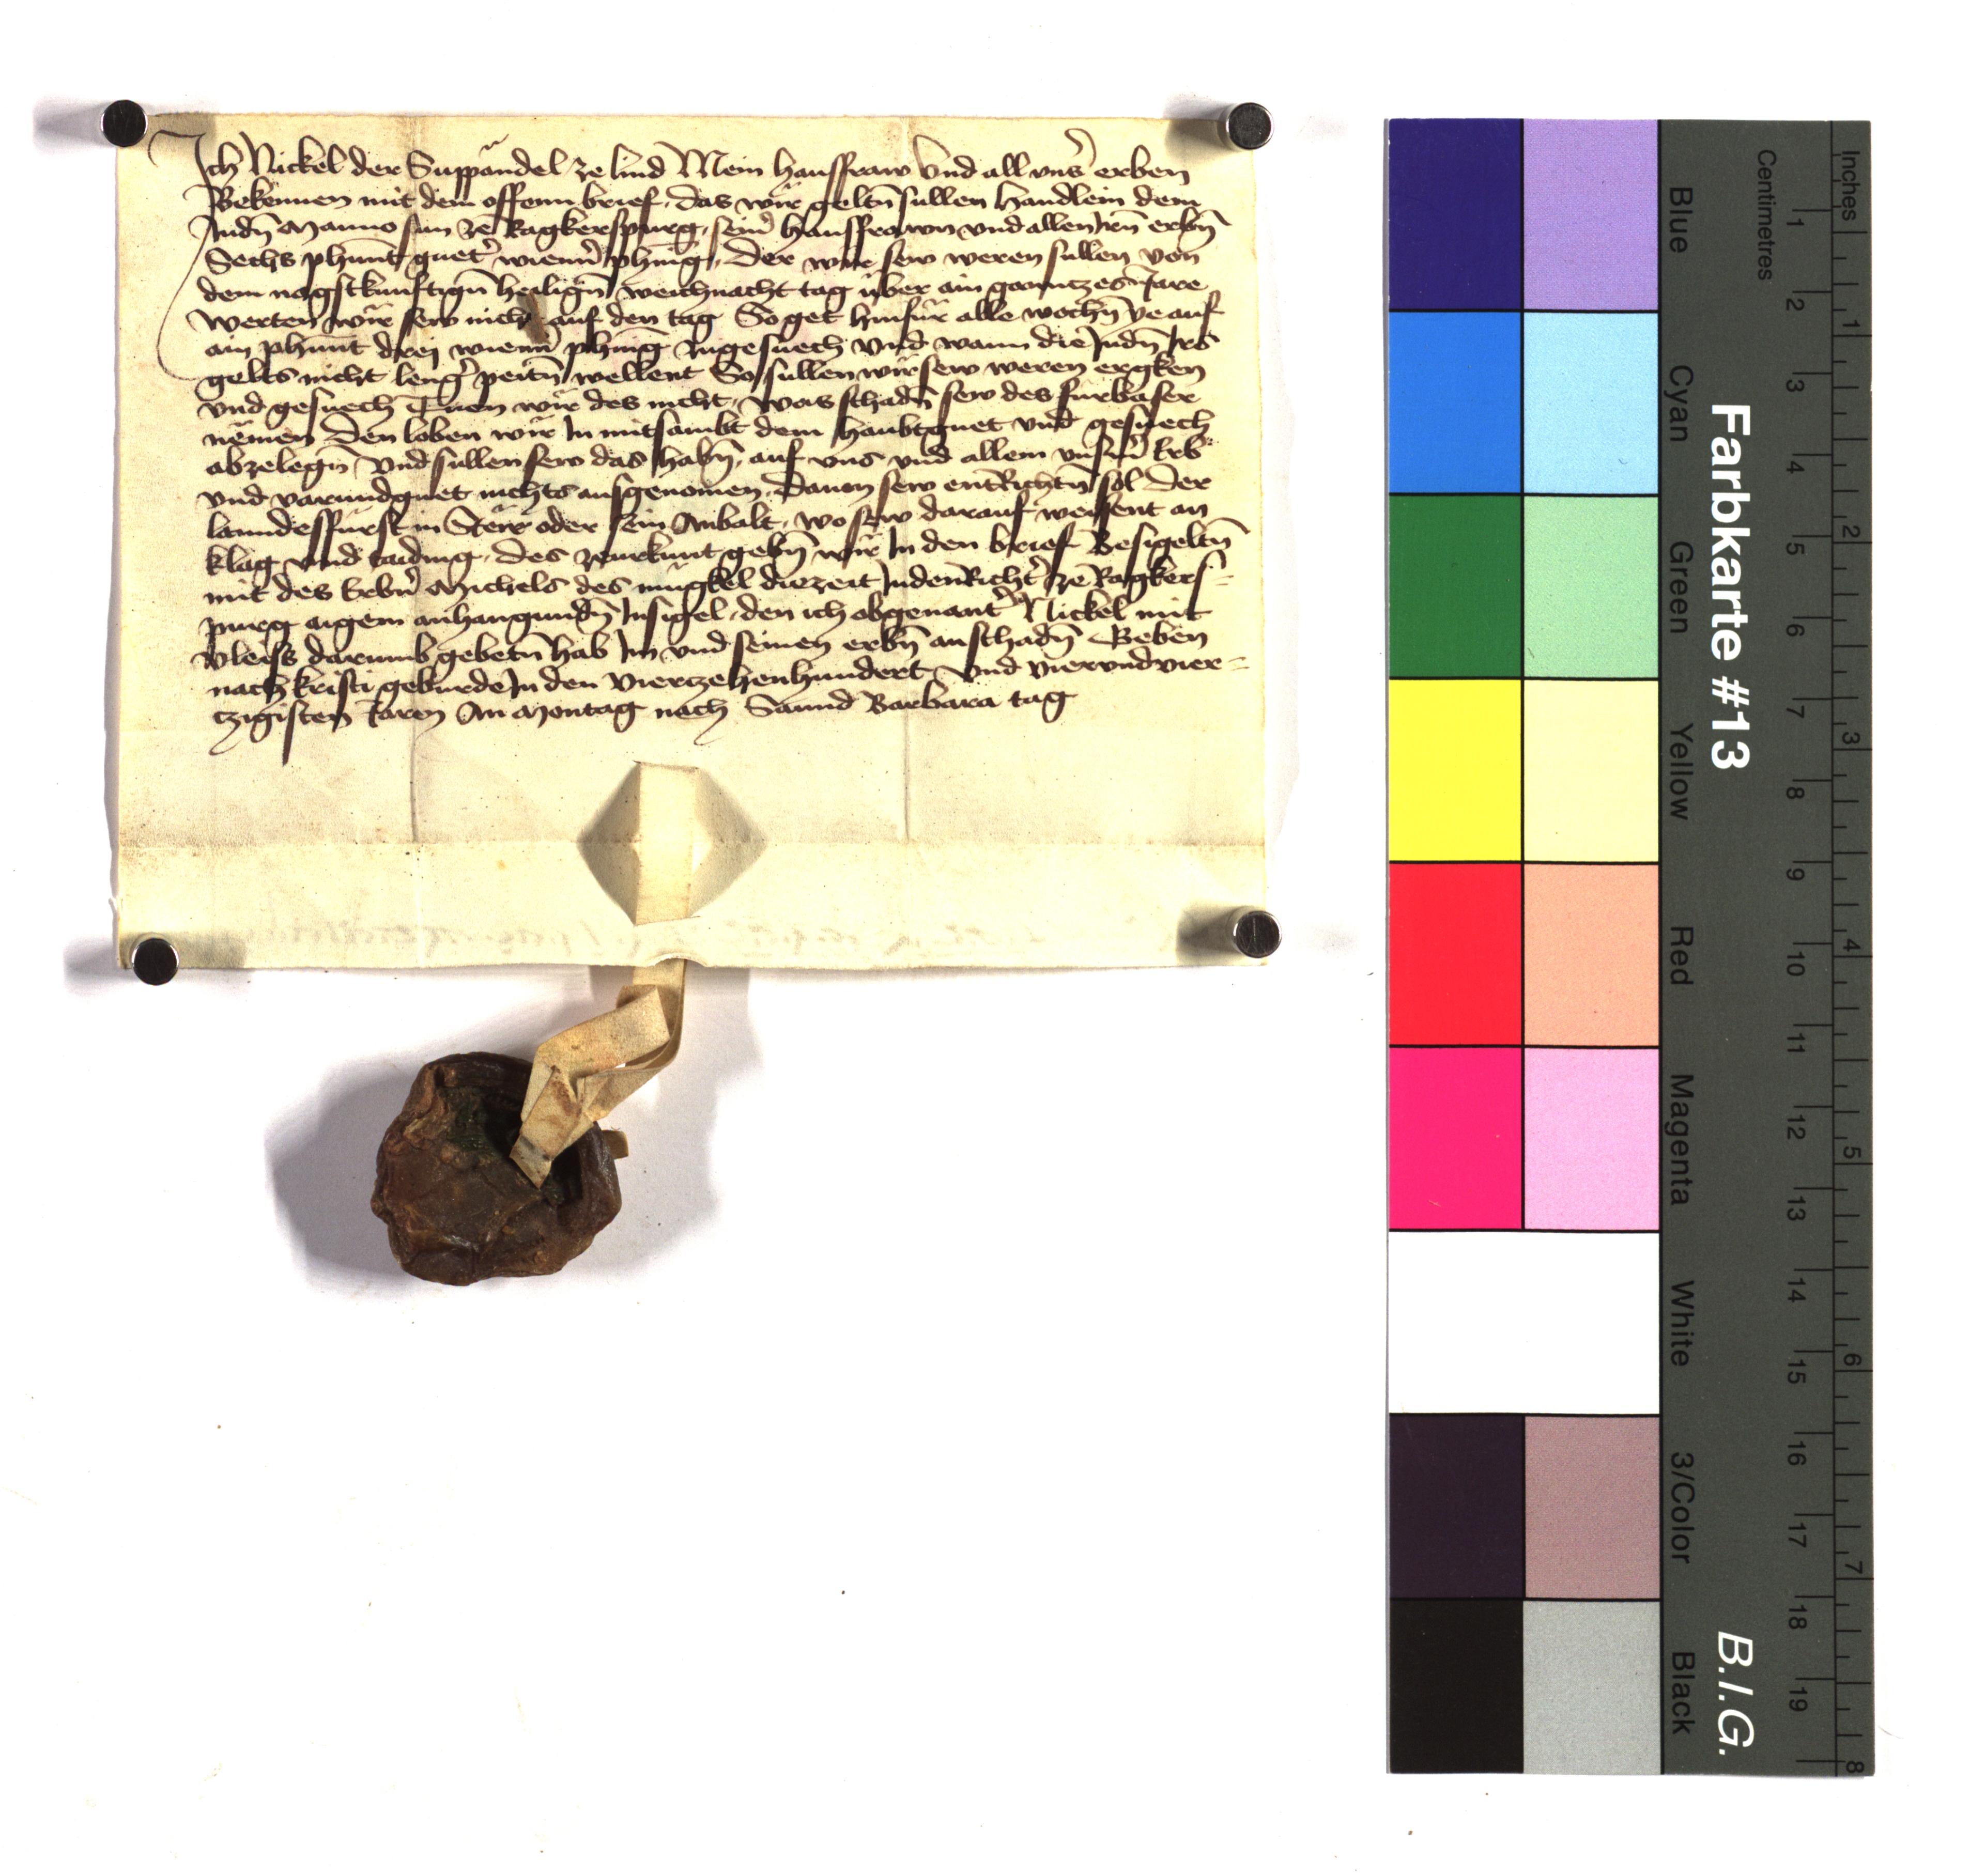 Ich Nickel der Suppändel ze lind Mein hausfraw Und all vnser erben
Bekennen mit dem offenn brief, das wir geltn sullen Handlein dem
Judn Manno sun ze Ragkerspurg, seinr hausfrawn vnd allen irn erbn
Sechs phunt guetr wienner phenig, Der wir sew weren sullen von
dem nagstkunftign heilign weichnacht tag über ain ganntzes Jare
Werten wir sew nicht auf den tag So get hinfür alle wochn ye auf
ain phunt drej wienner phenig zugesuech Und wann die Judn Irs
gelts nicht lengr peitn wellent So sullen wir sew weren ergken
vnd gesuech Tuen wir des nicht, Was schadn sew des fürbaser
nemen Den loben wir In mitsambt dem haubtguet vnd gesuech
abzelegn Und sullen sew das habn, auf vns vnd allem vnserm Erb
vnd varundguet nichts ausgenomen, Dauon sew entRichtn sol Der
lanndesfürst in Steir oder sein Anbalt, wo sew darauf weisent an
klag vnd taiding, Des zeurkunt gebn wir In den brief Besigeltn
mit des Erbrn Michels des mügkel diezeit JudenRichtr ze Ragkers=
purg aigem anhangundn Insigel, den ich obgenantr Nickel mit
vleiss darumb gebetn hab Im vnd seinen erbn anschadn Geben
nach kristi geburde In den Viertzehenhundert Und vierundvier=
tzigisten Jaren Am Montag nach Sannd Barbara tag
Farbkarte #13
B.I.G.
Inches 1 2 3 4 5 6 7 8
Centimetres 1 2 3 4 5 6 7 8 9 10 11 12 13 14 15 16 17 18 19
Blue Cyan Green Yellow Red Magenta White 3/Color Black